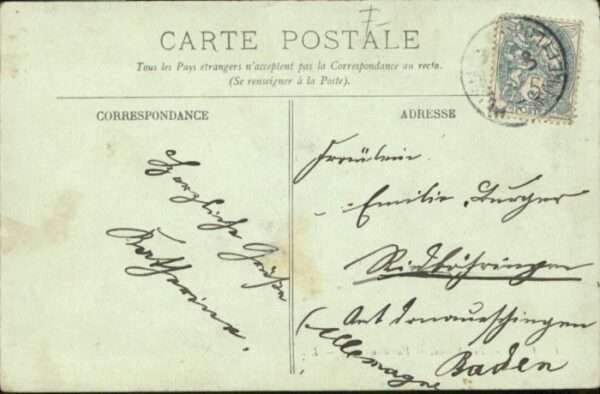 CARTE POSTALE
Tous les Pays étrangers n'acceptent pas la Correspondance au recto.
(Se renseigner à la Poste).
CORRESPONDANCE
ADRESSE
Herzliche Grüße
Katherina.
Fräulein
Emilie Burger
Riedböhringen
Amt Donaueschingen
Baden
(Allemagne